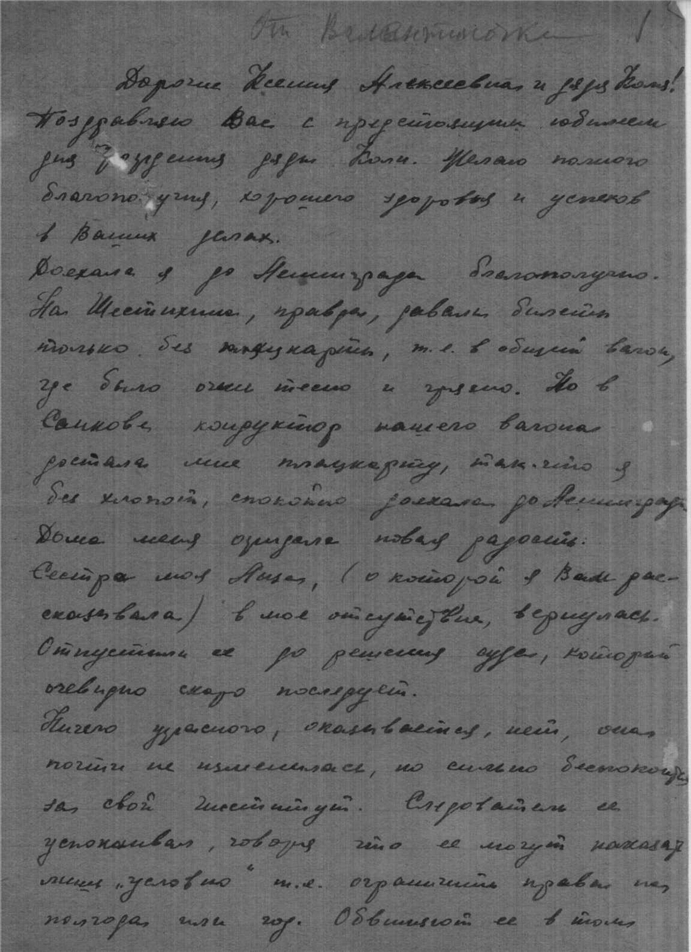 От Валентиночки 1
Дорогие Ксения Алексеевна и дядя Коля!
Поздравляю Вас с предстоящим юбилеем
дня рождения дяди Коли. Желаю полного
благополучия, хорошего здоровья и успехов
в Ваших делах.
Доехала я до Ленинграда благополучно.
На Шестихина, правда, давали билеты
только без плацкарты, т.е. в общий вагон,
где было очень тесно и грязно. Но в
Сонкове кондуктор нашего вагона
достала мне плацкарту, так-что я
без хлопот, спокойно доехала до Ленинграда
Дома меня ожидала новая радость.
Сестра моя Лиза, (о которой я Вам рас-
сказывала) в мое отсутствие, вернулась.
Отпустили ее до решения суда, который
очевидно скоро последует.
Ничего ужасного, оказывается, нет, она
почти не изменилась, но сильно беспокоится
за свой институт. Следователь ее
успокаивал, говоря что ее могут наказать
лишь „условно" т.е. ограничить права на
полгода или год. Обвиняют ее в том